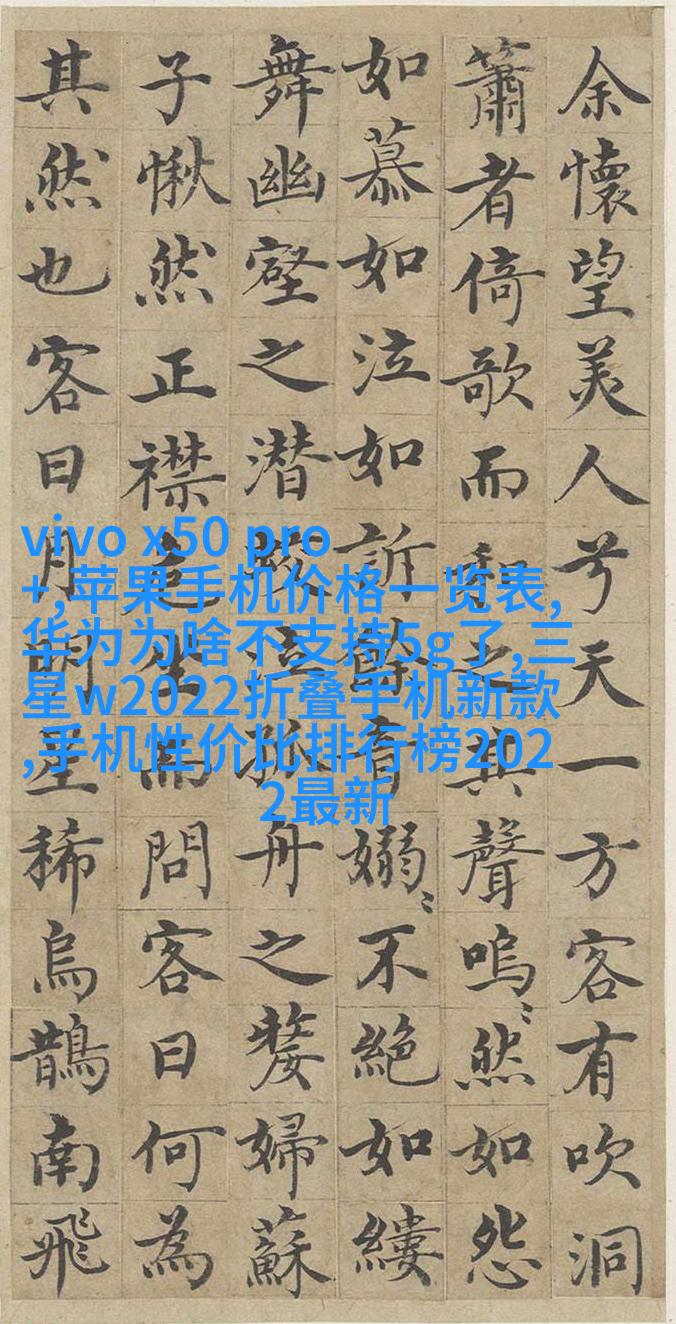 余懷望美人兮天一方客有吹洞
簫者倚歌而和之其聲嗚〻然如怨
如慕如泣如訴餘音嫋〻不絕如縷
舞幽壑之潛蛟泣孤舟之嫠婦蘇
子愀然正襟危坐而問客曰何為
其然也客曰月明星稀烏鵲南飛
vivo x50 pro
+,苹果手机价格一览表,
华为为啥不支持5g了,三
星w2022折叠手机新款
,手机性价比排行榜202
2最新